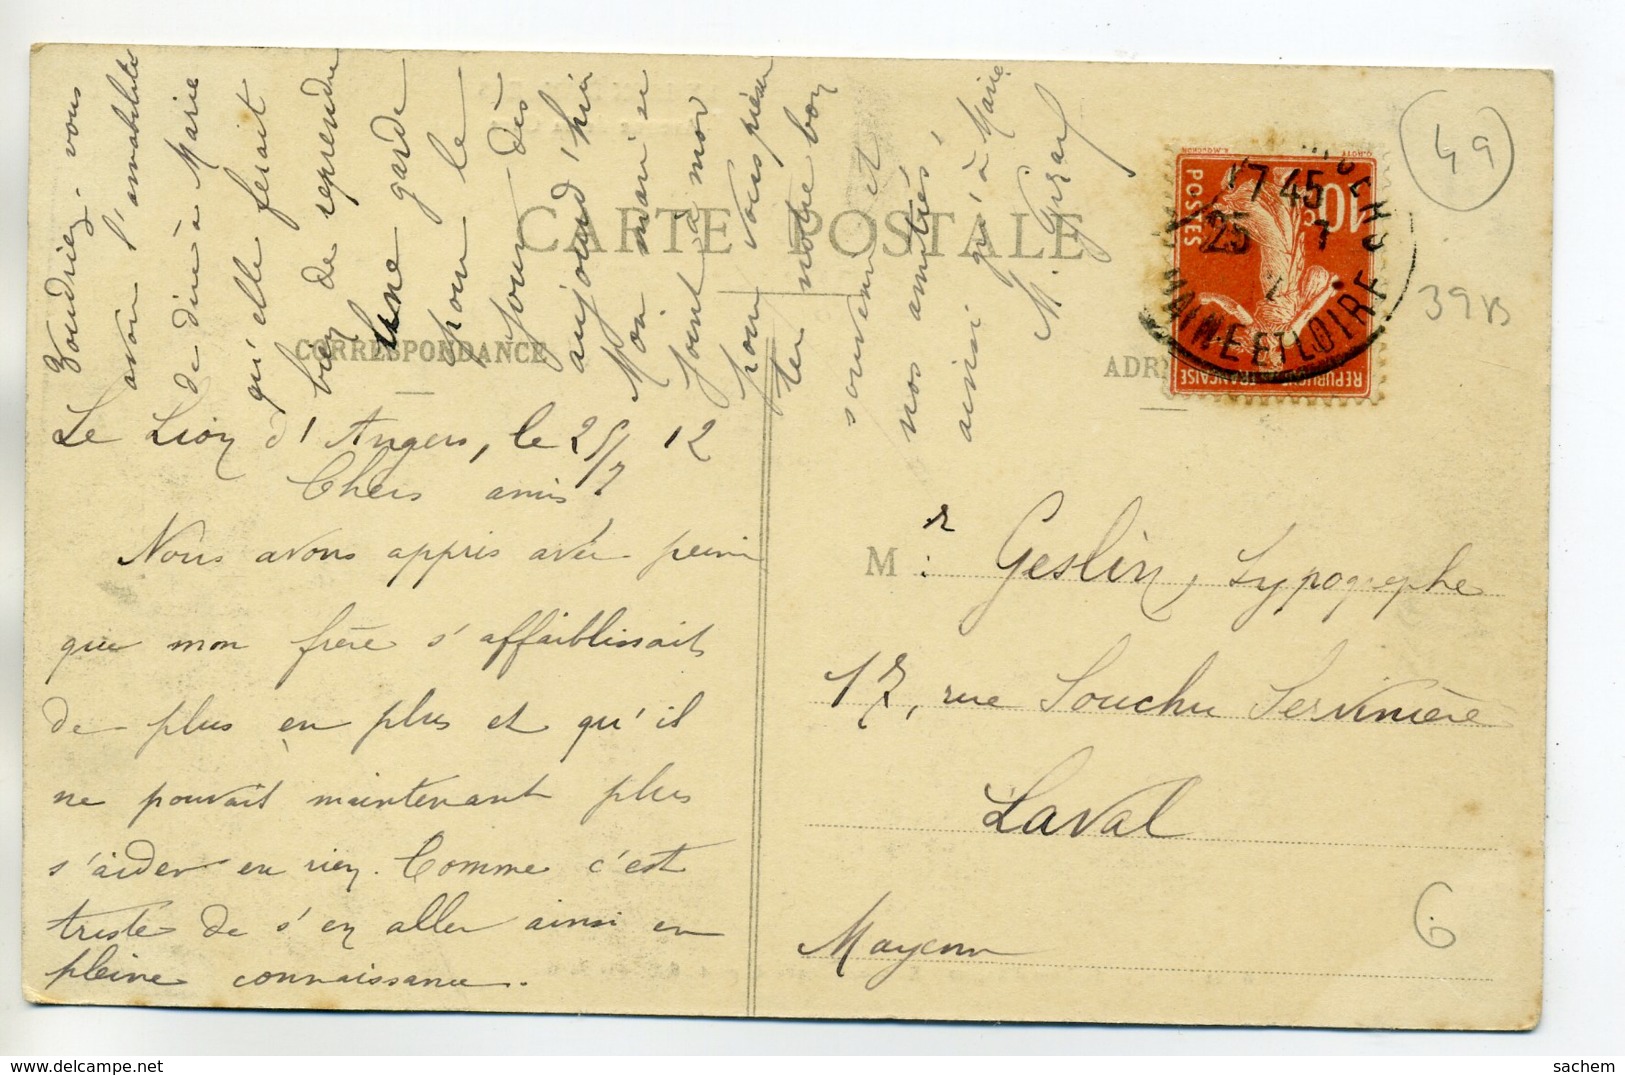 CARTE POSTALE
CORRESPONDANCE
ADR
Le Lion d'Angers, le 25/7 12
Chers amis
Nous avons appris avec peine
que mon frère s'affaiblissait
de plus en plus et qu'il
ne pouvait maintenant plus
s'aider en rien. Comme c'est
triste de s'en aller ainsi en
pleine connaissance.
Voudriez-vous
avoir l'amabilité
de dire à Marie
qu'elle ferait
bien de reprendre
une garde
pour le
jour dès
aujourd'hui
Mon mari se
joint à moi
pour vous
notre bon
souvenir et
nos amitiés,
ainsi qu'à Marie
M. Girard
Mr Geslin, typographe
17, rue Souchu Servinière
Laval
Mayenne
POSTES
10 c
REPUBLIQUE FRANÇAISE
17 45
25 7
MAINE ET LOIRE
49
39
6
sachem